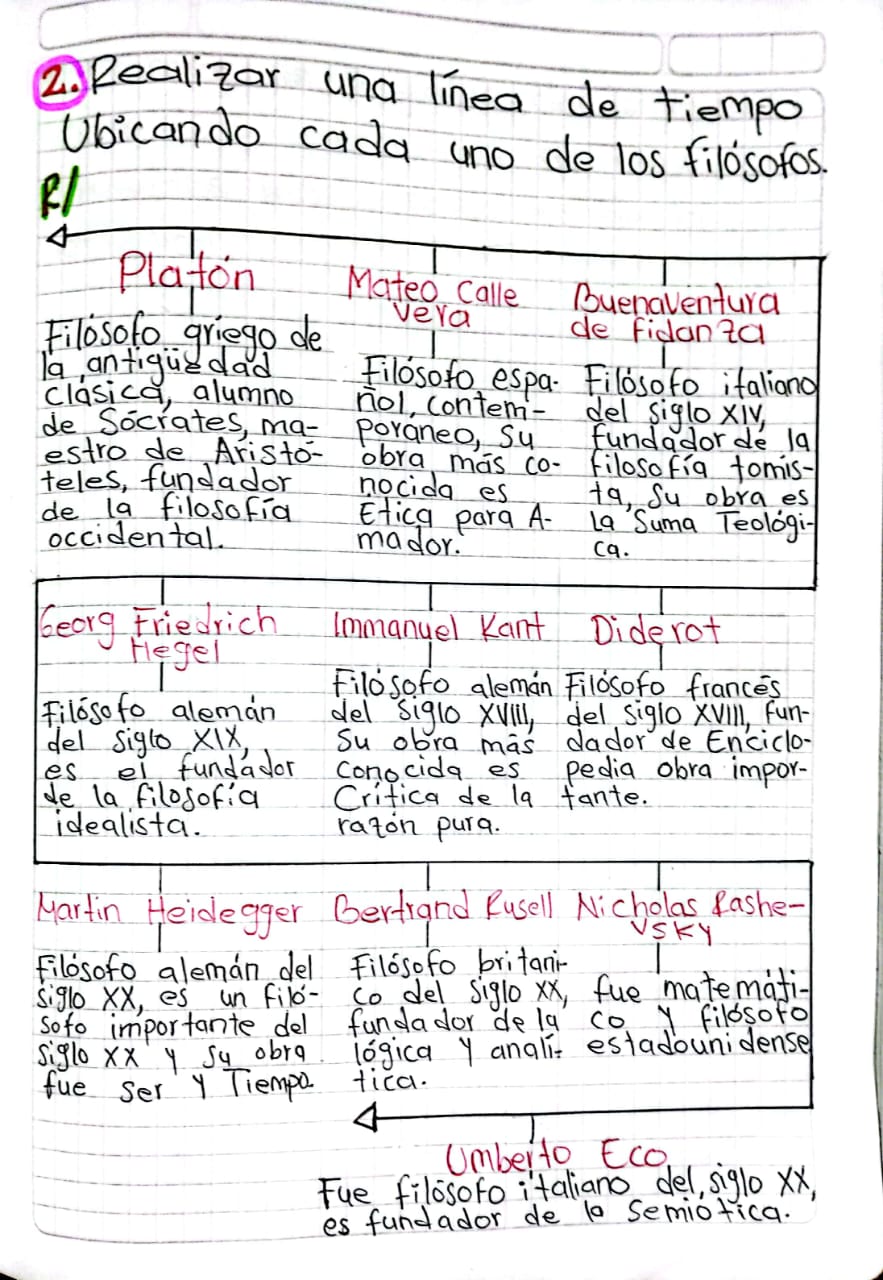 2. Realizar una línea de tiempo
Ubicando cada uno de los filósofos.
R/
Platón
Filósofo griego de
la antigüedad
clásica, alumno
de Sócrates, ma-
estro de Aristó-
teles, fundador
de la filosofía
occidental.
Mateo Calle
Vera
Filósofo espa-
ñol, contem-
poraneo, Su
obra más co-
nocida es
Etica para A-
mador.
Buenaventura
de Fidanza
Filósofo italiano
del siglo XIV,
fundador de la
filosofía tomis-
ta, Su obra es
La Suma Teológi-
ca.
Georg Friedrich
Hegel
Filósofo alemán
del siglo XIX,
es el fundador
de la filosofía
idealista.
Immanuel Kant
Filósofo alemán
del siglo XVIII,
Su obra más
conocida es
Crítica de la
razón pura.
Diderot
Filósofo francés
del siglo XVIII, fun-
dador de Enciclo-
pedia obra impor-
tante.
Martin Heidegger
Filósofo alemán del
siglo XX, es un filó-
sofo importante del
siglo XX y su obra
fue Ser y Tiempo.
Bertrand Rusell
Filósofo britani-
co del siglo XX,
fundador de la
lógica y analí-
tica.
Nicholas Rashe-
vsky
fue matemáti-
co y filósofo
estadounidense
Umberto Eco
Fue filósofo italiano del siglo XX,
es fundador de la Semiótica.